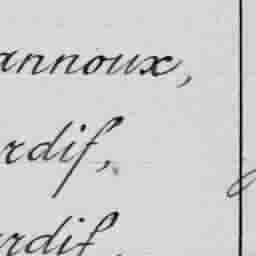 annoux,
rdif,
rdif,